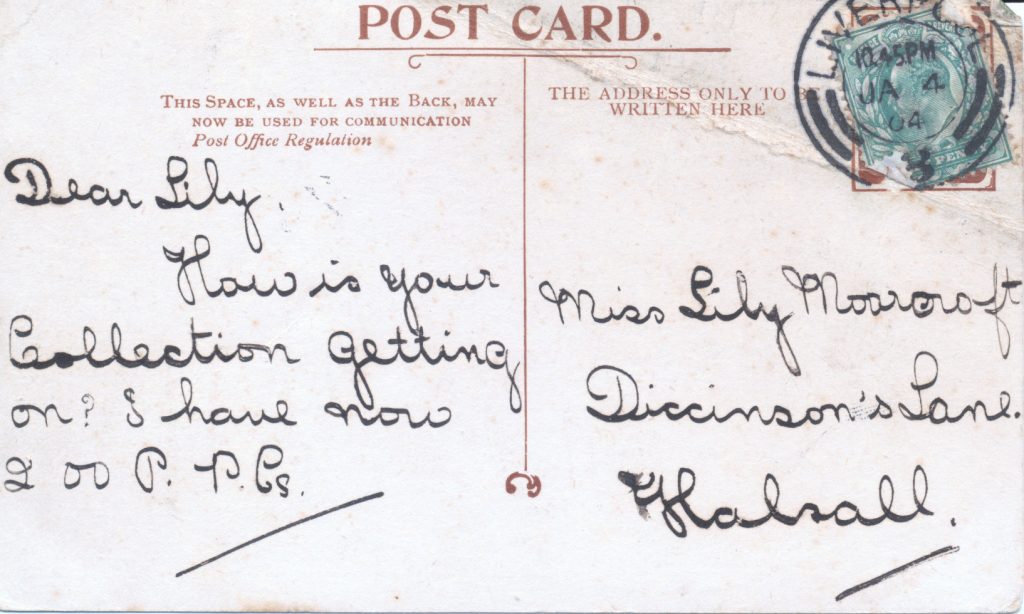 POST CARD.
THIS SPACE, AS WELL AS THE BACK, MAY
NOW BE USED FOR COMMUNICATION
Post Office Regulation
Dear Lily,
How is your
Collection getting
on? I have now
200 P. P. Cs.
THE ADDRESS ONLY TO
WRITTEN HERE
LIVERPOOL
10.45PM
JA 4
04
Miss Lily Moorcroft
Diccinson's Lane.
Halsall.